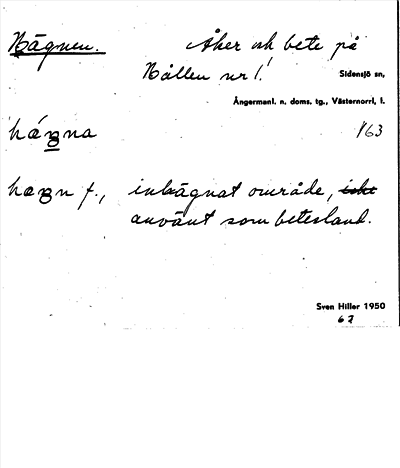 Hägnen. Åker och bete på
Hållen nr 1. Sidensjö sn,
Ångermanl. n. doms. tg., Västernorrl. l.
163
f., inhägnat område, icke
använt som betesland.
Sven Hiller 1950
67